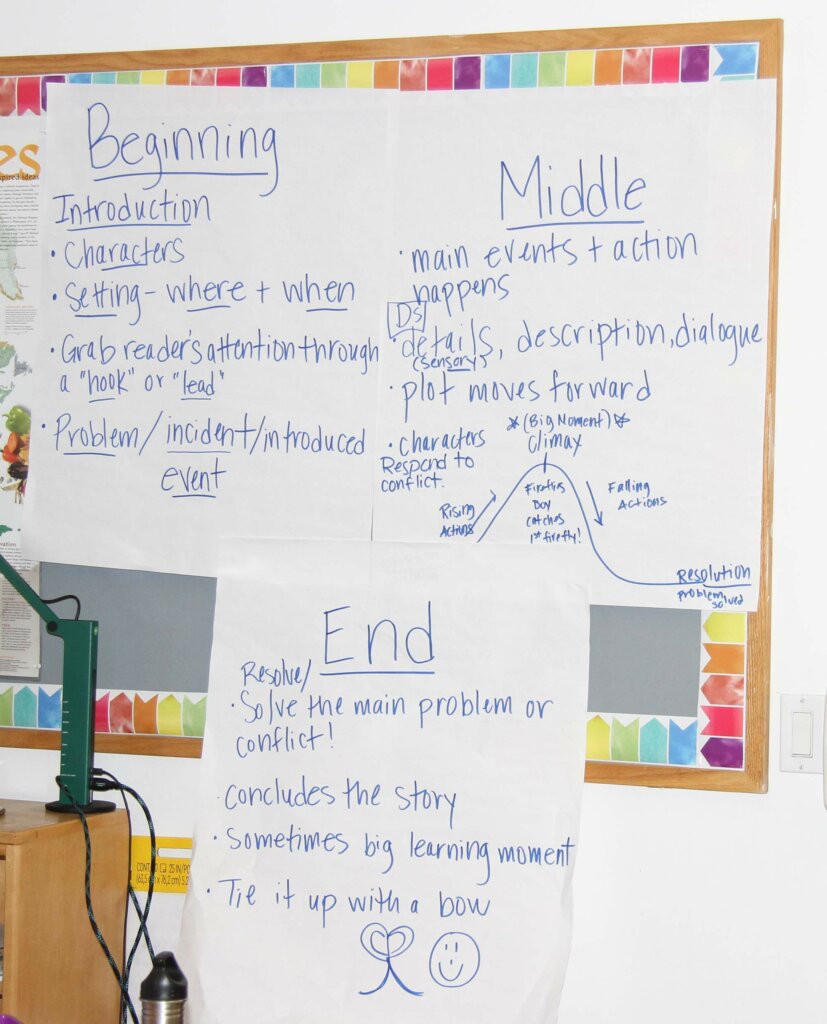 Beginning
Introduction
• Characters
• Setting - where + when
• Grab reader's attention through
a "hook" or "lead"
• Problem/incident/introduced
event
Middle
• main events + action
happens
Ds
• details, description, dialogue
(sensory)
• plot moves forward
• characters
Respond to
conflict.
(Big Moment)
Climax
Rising
Actions
Fireflies
Boy
catches
1st firefly!
Falling
Actions
Resolution
problem
solved
End
Resolve/
• Solve the main problem or
conflict!
• concludes the story
• Sometimes big learning moment
• Tie it up with a bow
es
spired ideas
25 IN/PO